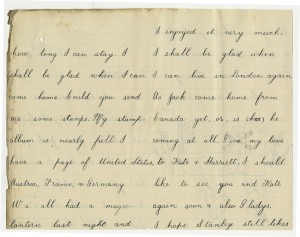 how long I can stay. I
shall be glad when I can
come home. Could you send
me some stamps. My stamp
album is nearly full. I
have a page of United States,
Austria, France, & Germany.
We all had a magic
lantern last night and
I enjoyed it very much.
I shall be glad when
I can live in London again
As Jack come home from
Canada yet, or is he not
coming at all. Give my love
to Kate & Harriett. I should
like to see you and Kate
again soon & also Gladys.
I hope Stanley still likes